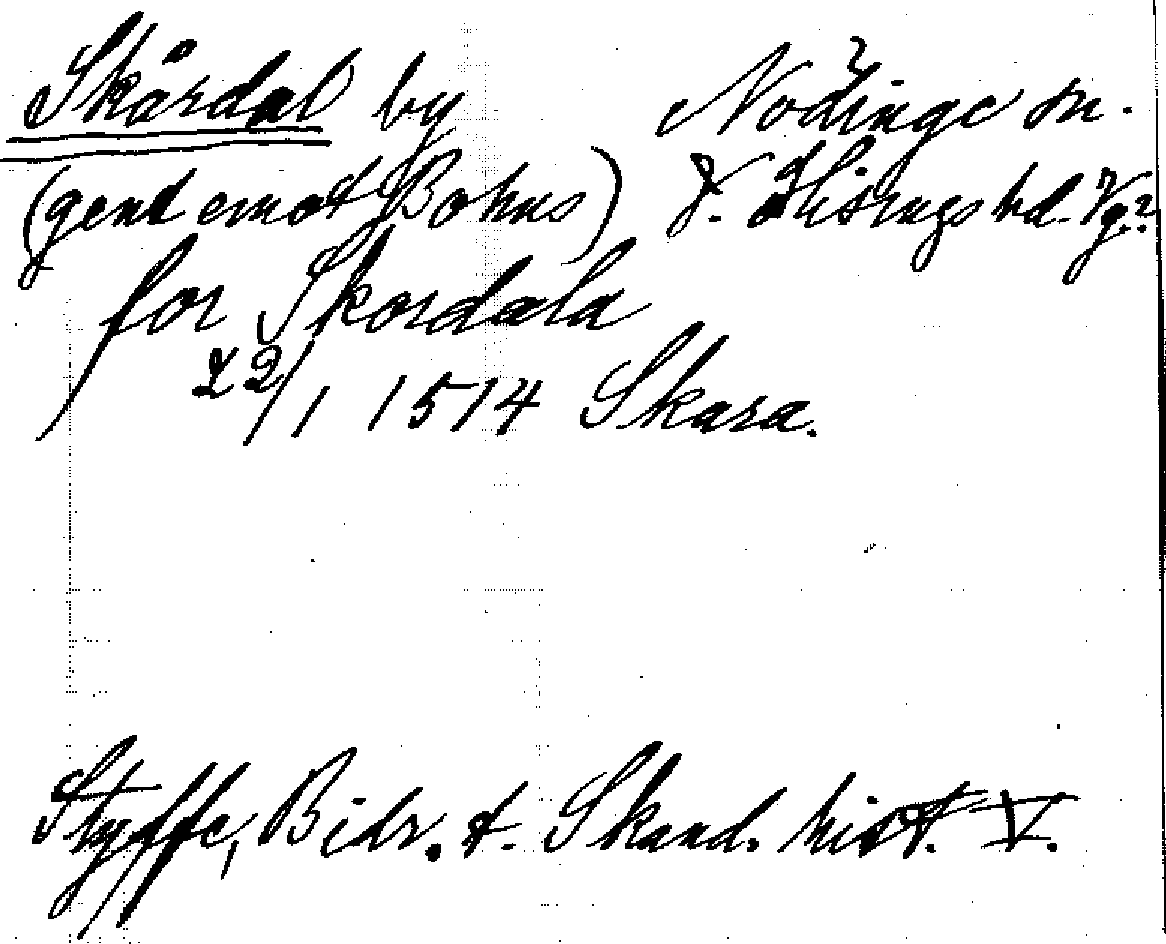 Skårdal by Nödinge sn.
(gent emot Bohus) Hisings hd. Vg.?
for Skordala
22/1 1514 Skara.
Styffe, Bidr. t. Skand. hist. V.